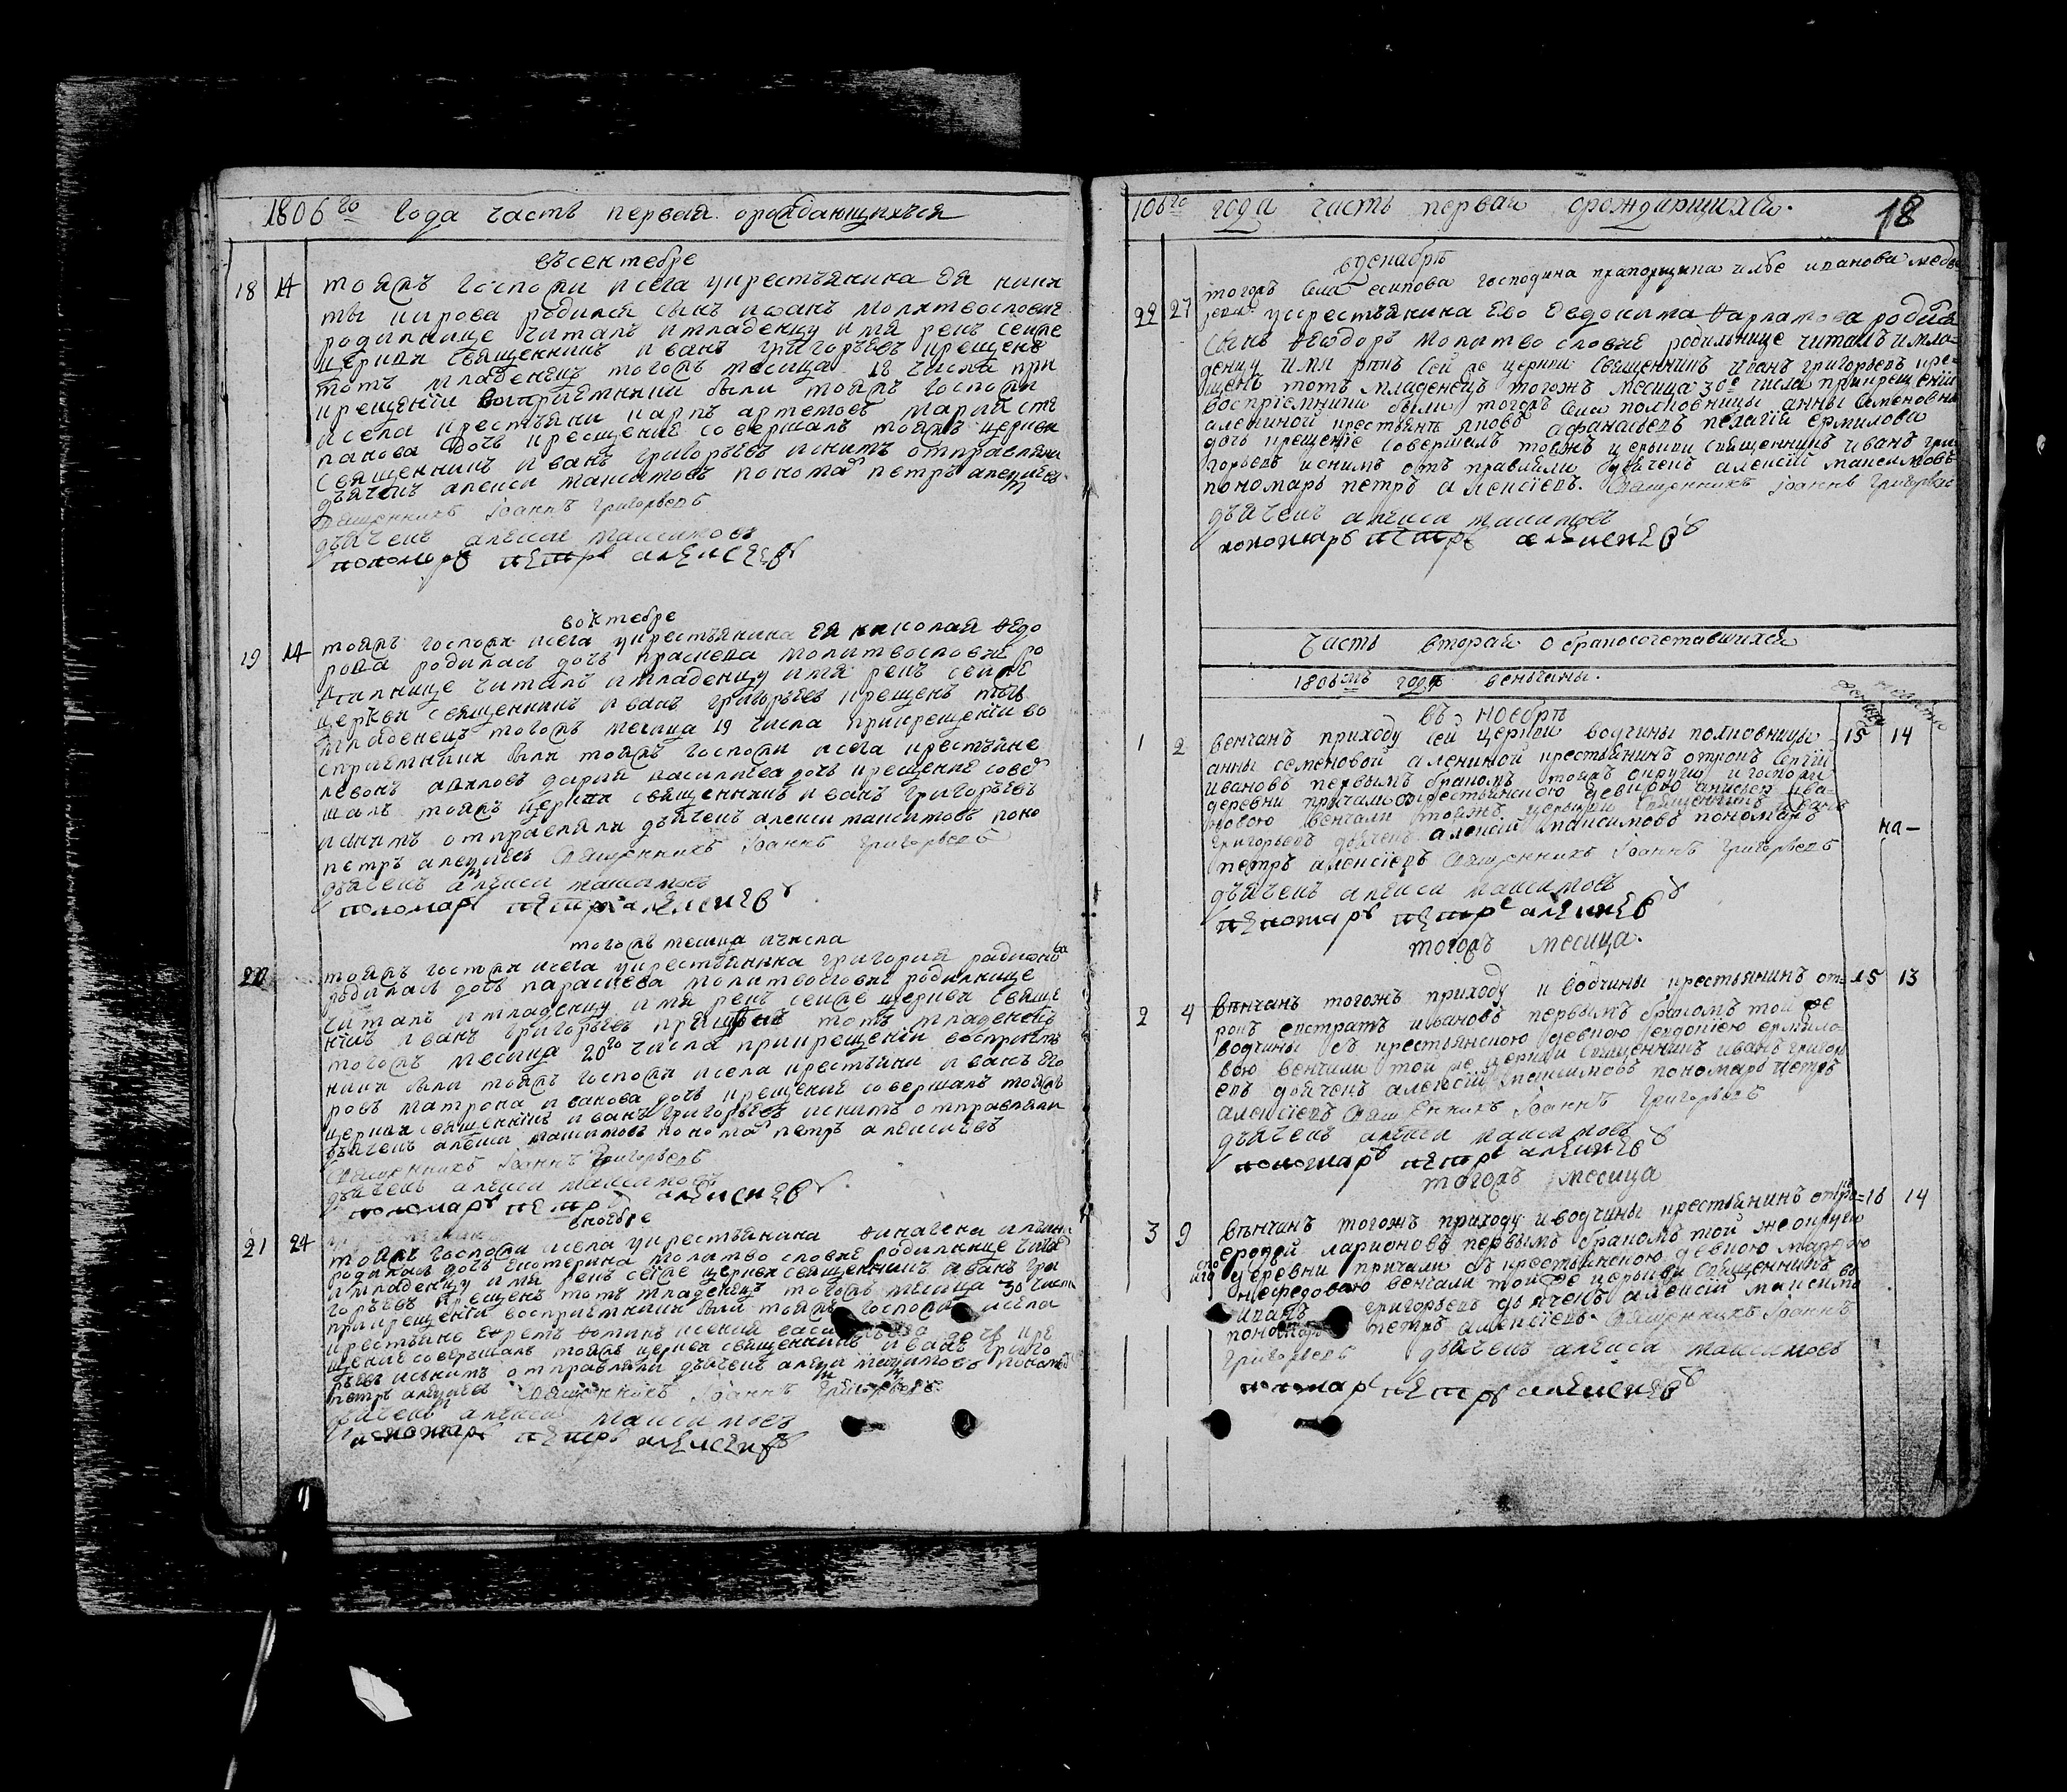 1806го года часть первая орождающихъся
въсентебре
18 14 тояжъ госпожи исела укрестьянина ея ники
ты кирова родился сынъ иоанъ молитвословие
родилнице читалъ имладенцу имя рекъ сеяже
церкви священникъ иванъ григорьевъ крещенъ
тотъ младенецъ тогожъ месяца 18 числа при
крещении восприемники были тояжъ госпожи
исела крестьяни карпъ артемовъ марья сте
панова дочь крещение совершалъ тояжъ церкви
священникъ иванъ григорьевъ иснимъ отправляли
дьячекъ алекси максимовъ понома петръ алексиевъ
священникъ Iоаннъ григорьевъ
дьячекъ алекси максимовъ
пономарь петръ алексеевъ
воктебре
19 14 тояжъ госпожи исела укрестьянина ея николая федо
рова родилась дочь праскева молитвословие ро
дилнице читалъ имладенцу имя рекъ сеяже
церкви священникъ иванъ григорьевъ крещенъ тотъ
младенецъ тогожъ месяца 19 числа прикрещении во
сприемники были тояжъ госпожи исела крестьяне
левонъ дарья василиева дочь крещение совер
шалъ тояжъ церкви священникъ иванъ григорьевъ
иснимъ отправляли дьячекъ алекси максимовъ поно
петръ алексиевъ священникъ Iоаннъ григорьевъ
дьячекъ алекси максимовъ
пономарь петръ алексеевъ
тогожъ месяца ичисла
20 тояжъ госпожи исела укрестьянина григория родионова
родилась дочь параскева молитвословие родилнице
читалъ имладенцу имя рекъ сеяже церкви свяще
никъ иванъ григорьевъ крещенъ тотъ младенецъ
тогожъ месяца 20го числа прикрещении восприем
ники были тояжъ госпожи исела крестьяни иванъ его
ровъ матрона иванова дочь крещение совершалъ тояжъ
церкви священникъ иванъ григорьевъ иснимъ отправляли
дьячекъ алекси максимовъ понома петръ алексиевъ
священникъ Iоаннъ григорьевъ
дьячекъ алекси максимовъ
пономарь петръ алексеевъ
вноебре
21 24 тояжъ госпожи исела укрестьянина
родилась дочь екатерина молитво словие родилнице чита
имладенцу имя рекъ сеяже церкви священникъ иванъ гри
горьевъ крещенъ тотъ младенецъ тогожъ месяца 30 числа
прикрещении восприемники были тояжъ госпожи исела
крестьяне ксения дочь кре
щение совершалъ тояжъ церкви священникъ иванъ григо
рьевъ иснимъ отправляли дьячекъ алекси максимовъ понома
петръ алексиевъ священникъ Iоаннъ григорьевъ
дьячекъ алекси максимовъ
пономарь петръ алексеевъ
1806го года часть первая орождающихся. 18
вдекабръ
тогожъ села есипова господина прапорщика глебе иванова
22 27 укрестьянина его евдокима варламова родился
сынъ феодоръ молитво словие родильнице читалъ имла-
денцу имя рекъ сей же церкви священникъ иванъ григорьевъ кре-
щенъ тотъ младенецъ тогожъ месяца 30е числа прикрещении
восприемники были тогожъ села полковницы анны семеновны
алениной крестьянъ яковъ афанасьевъ пелагия ермилова
дочь крещение совершалъ тояжъ церкви священникъ иванъ гри-
горьевъ иснимъ отъ правляли дьячекъ алексий максимовъ
пономарь петръ алексиевъ. священникъ Iоаннъ григорьевъ
дьячекъ алекси максимовъ
пономарь петръ алексеевъ
Часть вторая о бракосочетавшихся
1806мъ годе венчаны.
въ ноебре
1 2 венчанъ приходу сей церкви вотчины полковницы 15 14
анны семеновой алениной крестьянинъ отрокъ сергий
ивановъ первымъ бракомъ тояжъ округи и госпожи
деревни причали скрестьянского девкою ива-
новою венчали тояжъ церькви священникъ иванъ
григорьевъ дьячекъ алексий максимовъ пономарь
петръ алексиевъ священникъ Iоаннъ григорьевъ
на-
дьячекъ алекси максимовъ
пономарь петръ алексеевъ
тогожъ месяца.
2 4 венчанъ тогожъ приходу и водчины крестьянинъ от= 15 13
рокъ евстратъ ивановъ первымъ бракомъ той же
водчины съ крестьянскою девкою евдокиею ермило
вою венчали той же церкви священникъ иванъ григорь
евъ дьячекъ алексий максимовъ пономарь петръ
алексиевъ священникъ Iоаннъ григорьевъ
дьячекъ алекси максимовъ
пономарь петръ алексеевъ
тогожъ месяца
3 9 венчанъ тогожъ приходу и водчины крестьянинъ отро= 16 14
ерофей ларионовъ первымъ бракомъ той же округи
деревни причали съ крестьянскою девкою марфою
нефедовою венчали той же церькви священникъ
иванъ григорьевъ дьячекъ алексий максимо
пономарь петръ алексиевъ священникъ Iоаннъ
григорьевъ дьячекъ алекси максимовъ
пономарь петръ алексеевъ